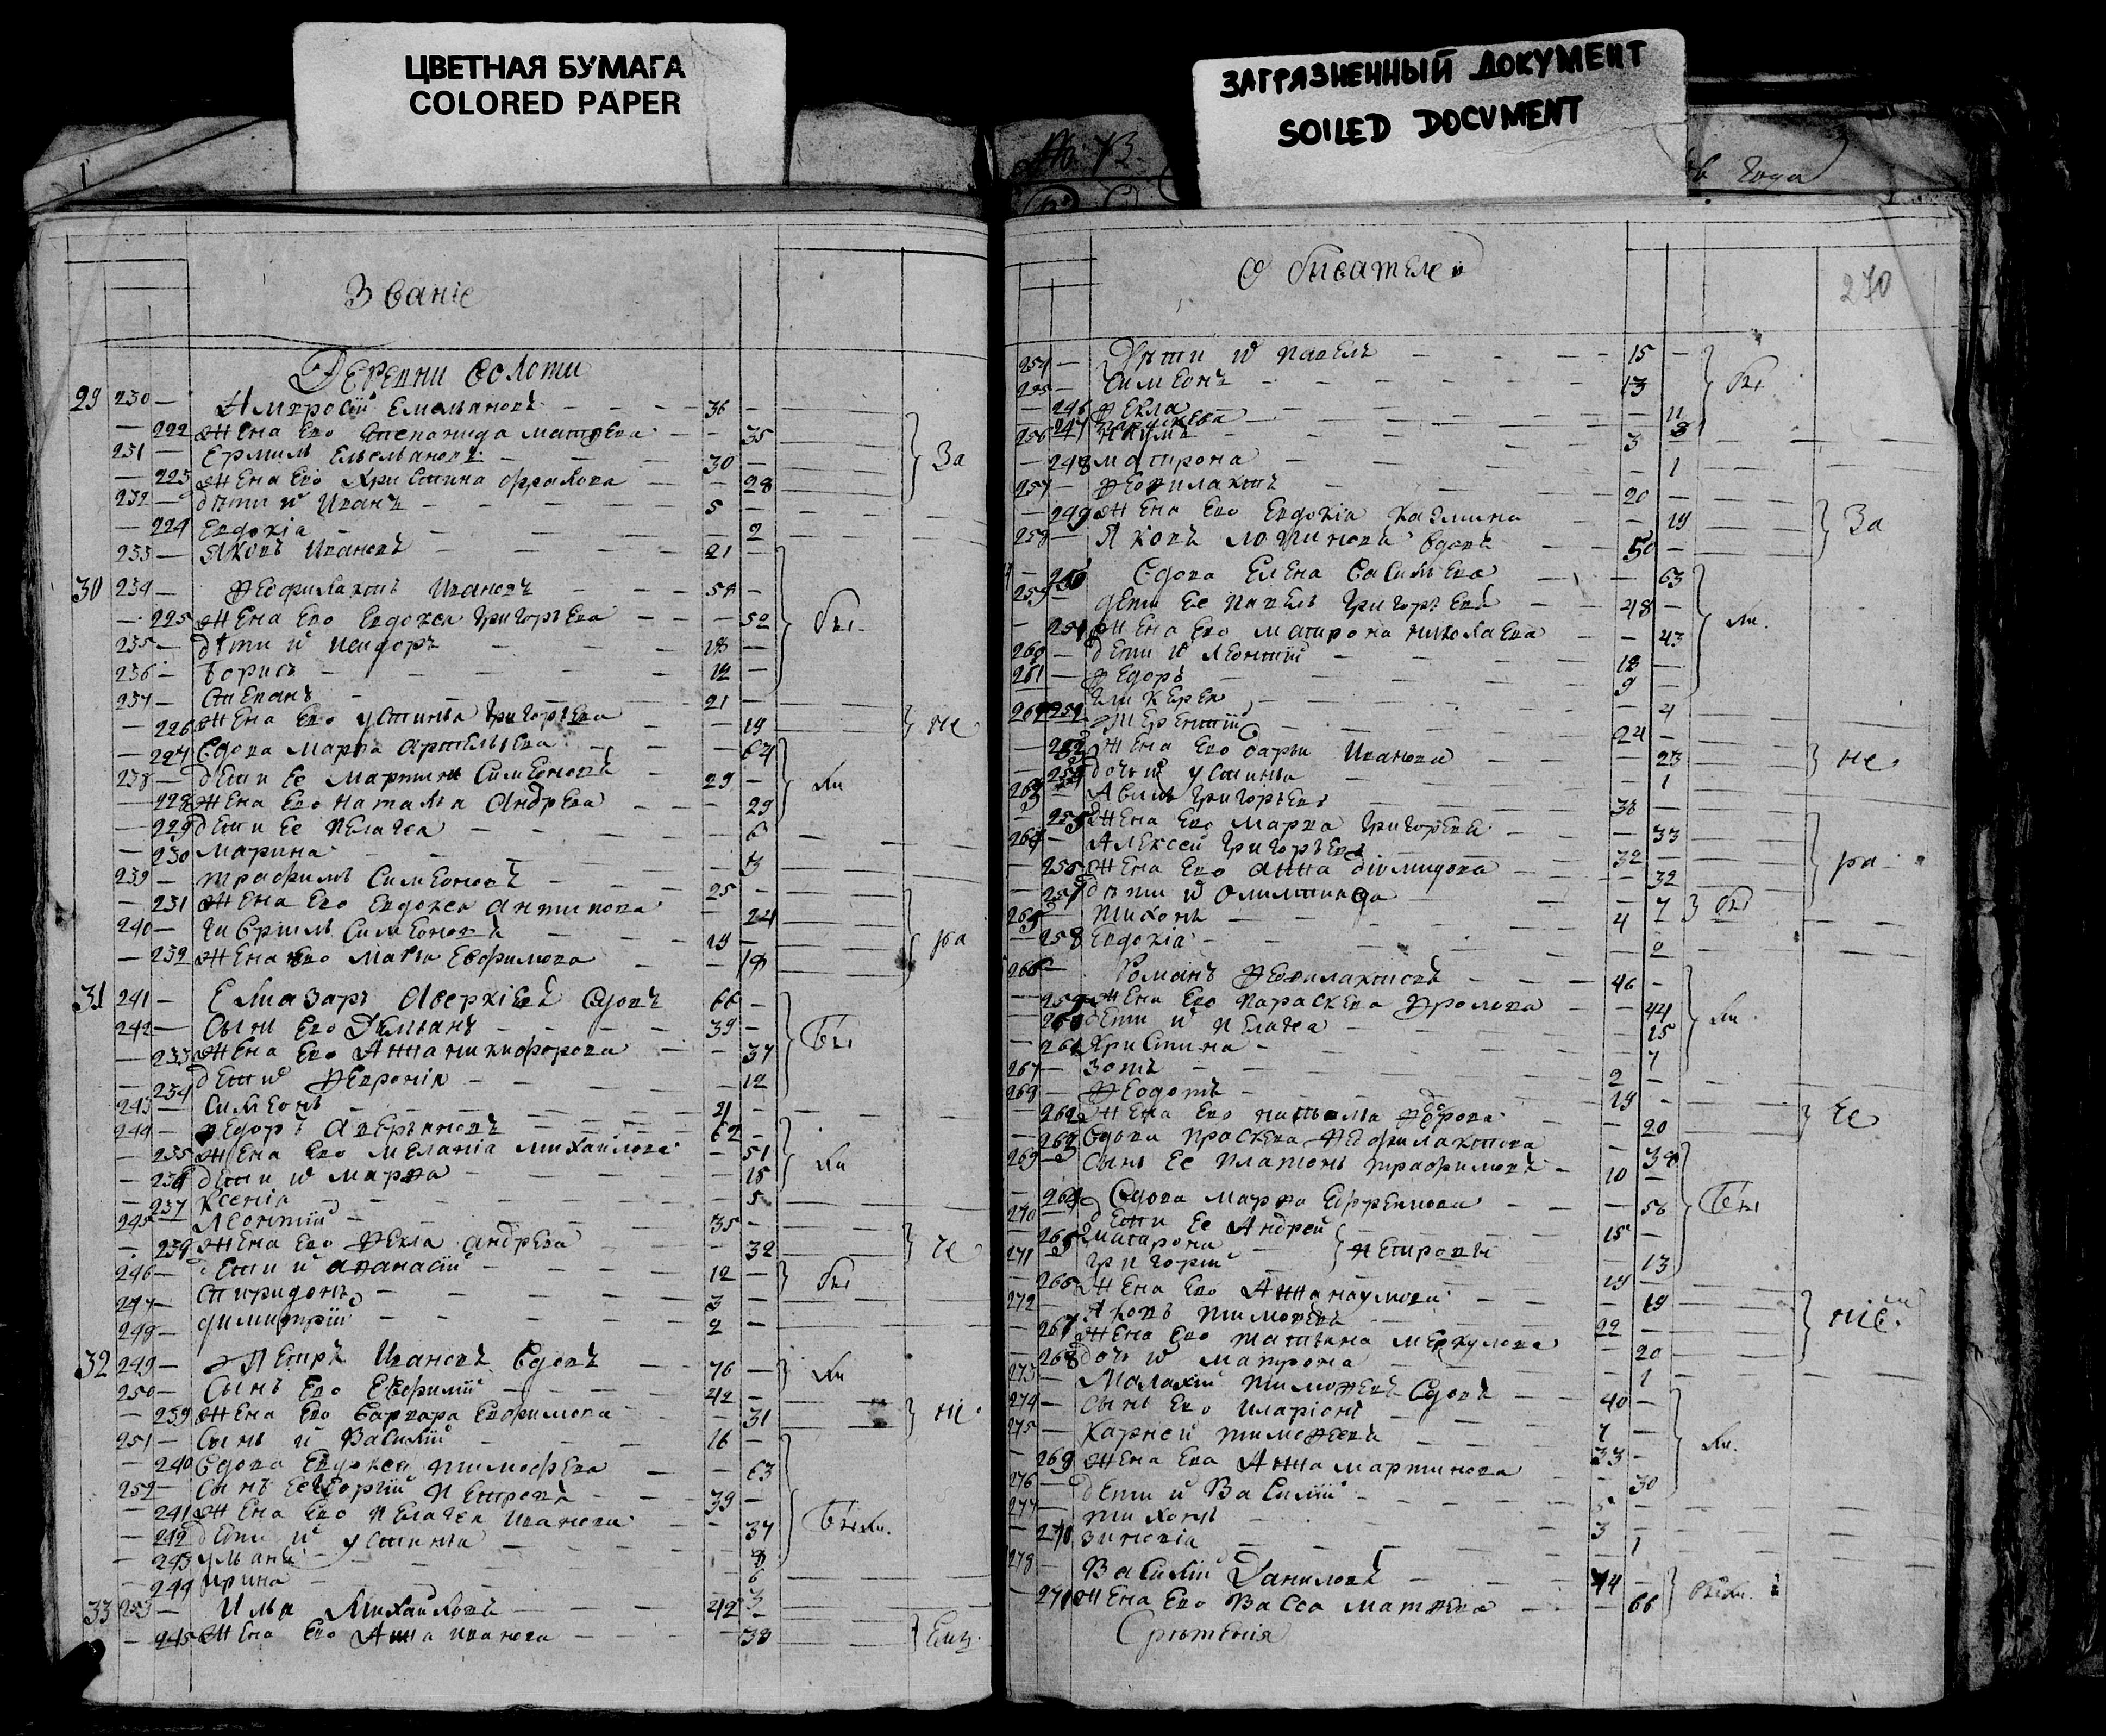 ЦВЕТНАЯ БУМАГА
COLORED PAPER
ЗАГРЯЗНЕННЫЙ ДОКУМЕНТ
SOILED DOCUMENT
года
Званіе
Деревни
29 230 — Амвросій Емельяновъ — 36 —
— 222 жена его Степанида — 35
231 — Ермилъ Емельяновъ — 30 — За
— 223 жена его Христина Фролова — 28
232 — дѣти и Иванъ — 5 —
— 224 Евдокіа — 2
233 — Яковъ Ивановъ — 21 —
30 234 — Феофилактъ Ивановъ —
— 225 жена его Евдокея Григорьева — 52
235 — дѣти и Исидоръ — 18 —
236 — Борисъ — 12 —
237 — Степанъ — 21 —
— 226 жена его Устинья Григорьева — 19 не
— 227 вдова Марфа
238 — дети ее Мартинъ Симеоновъ — 29 —
— 228 жена его Наталья Андрева — 29
— 229 дети ее Пелагея — 6
— 230 Марина — 3
239 — Трофимъ Симеоновъ — 25 —
— 231 жена его Евдокея Антипова — 24
240 — Гавріилъ Симеоновъ — 19 — ра
— 232 жена его Евфимова — 18
31 241 — Елиазаръ Аверкіевъ вдовъ 66 —
242 — Сынъ его Демьянъ — 39 —
— 233 жена его Анна Никифорова — 37
— 234 дети Феврониа — 12
243 — Симеонъ — 21 —
244 — Федоръ — 62 —
— 235 жена его Меланіа Михаилова — 51
— 236 дети и Марфа — 15
— 237 Ксеніа — 5
245 — Леонтій — 35 —
— 238 жена его Фекла Андрева — 32
246 — дети и Афанасій — 12 —
247 — Спиридонъ — 3 —
248 — Димитрій — 2 —
32 249 — Петръ Ивановъ вдовъ — 76 —
250 — Сынъ его Евфимій — 42 —
— 239 жена его Варвара Евфимова — 31
251 — Сынъ и Василій — 16 —
— 240 вдова Евдокея Тимофева — 63
252 — Сынъ ее Георгій Петровъ — 39 —
— 241 жена его Пелагея Иванова — 37
— 242 дети и Устинья — 8
— 243 Ульана — 6
— 244 Ирина — 3
33 253 — Илья Михаиловъ — 42 —
— 245 жена его Анна Иванова — 38
Обывателей
270
254 — Дѣти и Павелъ — 15 —
255 — Симеонъ — 13
— 246 Фекла — 11
— 247 Параскева — 8
256 — Наумъ — 3
— 248 Матрона — 1
257 — Феофилактъ — 20 —
— 249 жена его Евдокіа Казмина — 19 За
258 — Яковъ вдовъ — 50 —
— 250 Вдова Елена Василева — 63
259 — дети ее Павелъ Григорьевъ — 48 —
— 251 жена его Матрона Николаева — 43
260 — дети и Леонтій — 18 —
261 — Федоръ — 9 —
— 252 Гликерея — 4
262 — Терентій — 24 —
— 253 жена его Дарья Иванова — 23 не
— 254 дочь и Устинья — 1
263 — Авимъ Григорьевъ — 38
— 255 жена его Марфа Григорева — 33
264 — Алексеи Григорьевъ — 32 — ра
— 256 жена его Анна Діомидова — 32
— 257 дѣти и — 7
265 — Тихонъ — 4
— 258 Евдокіа — 2
266 — Романъ Феофилактовъ — 46 —
— 259 жена его Параскева Фролова — 44
— 260 дети и Пелагея — 15
— 261 Христина — 7
267 — Зотъ — 2 —
268 — Феодотъ — 19 —
— 262 жена его — 20
— 263 вдова Праскева Феофилактова — 38
269 — сынъ ее Платонъ Трофимовъ — 10 —
— 264 Вдова Марфа Ефремова — 56
270 — дети ее Андрей — 15 —
— 265 Матрона Петровы — 13
271 — Григорій — 19 —
— 266 жена его Анна Наумова — 19
272 — Яковъ Тимофевъ — 22 —
— 267 жена его Татьяна Меркулова — 20
— 268 дочь и Матрона — 1
273 — Малахій Тимофевъ вдовъ — 40 —
274 — сынъ его Иларіонъ — 7 —
275 — Карней Тимофеевъ — 33 —
— 269 жена ева Анна Мартинова — 30
276 — дети и Василій — 5 —
277 — Тихонъ — 3
— 270 Зиновіа — 1
278 — Василій Даниловъ — 74 —
— 271 жена его Васса Матфева — 66
Срѣтеніа